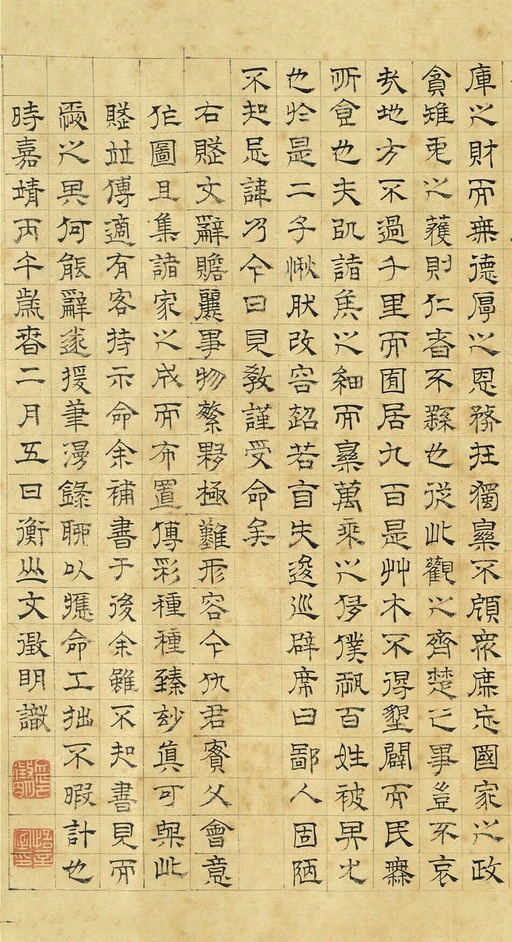 庫之財而無德厚之恩務在獨樂不顧衆庶忘國家之政
貪雉兔之獲則仁者不繇也從此觀之齊楚之事豈不哀
哉地方不過千里而囿居九百是艸木不得墾闢而民無
所食也夫以諸侯之細而樂萬乘之侈僕恐百姓被其尤
也於是二子愀肰改容超若自失逡巡辟席曰鄙人固陋
不知忌諱乃今日見教謹受命矣
右賦文辭贍麗事物繁夥極難形容今仇君實父會意
作圖且集諸家之成而布置傅彩種種臻玅真可與此
賦並傳適有客持示命余補書于後余雖不知書見而
之異何能辭遂援筆漫錄聊以應命工拙不暇計也
時嘉靖丙午歲春二月五日衡山文徵明識